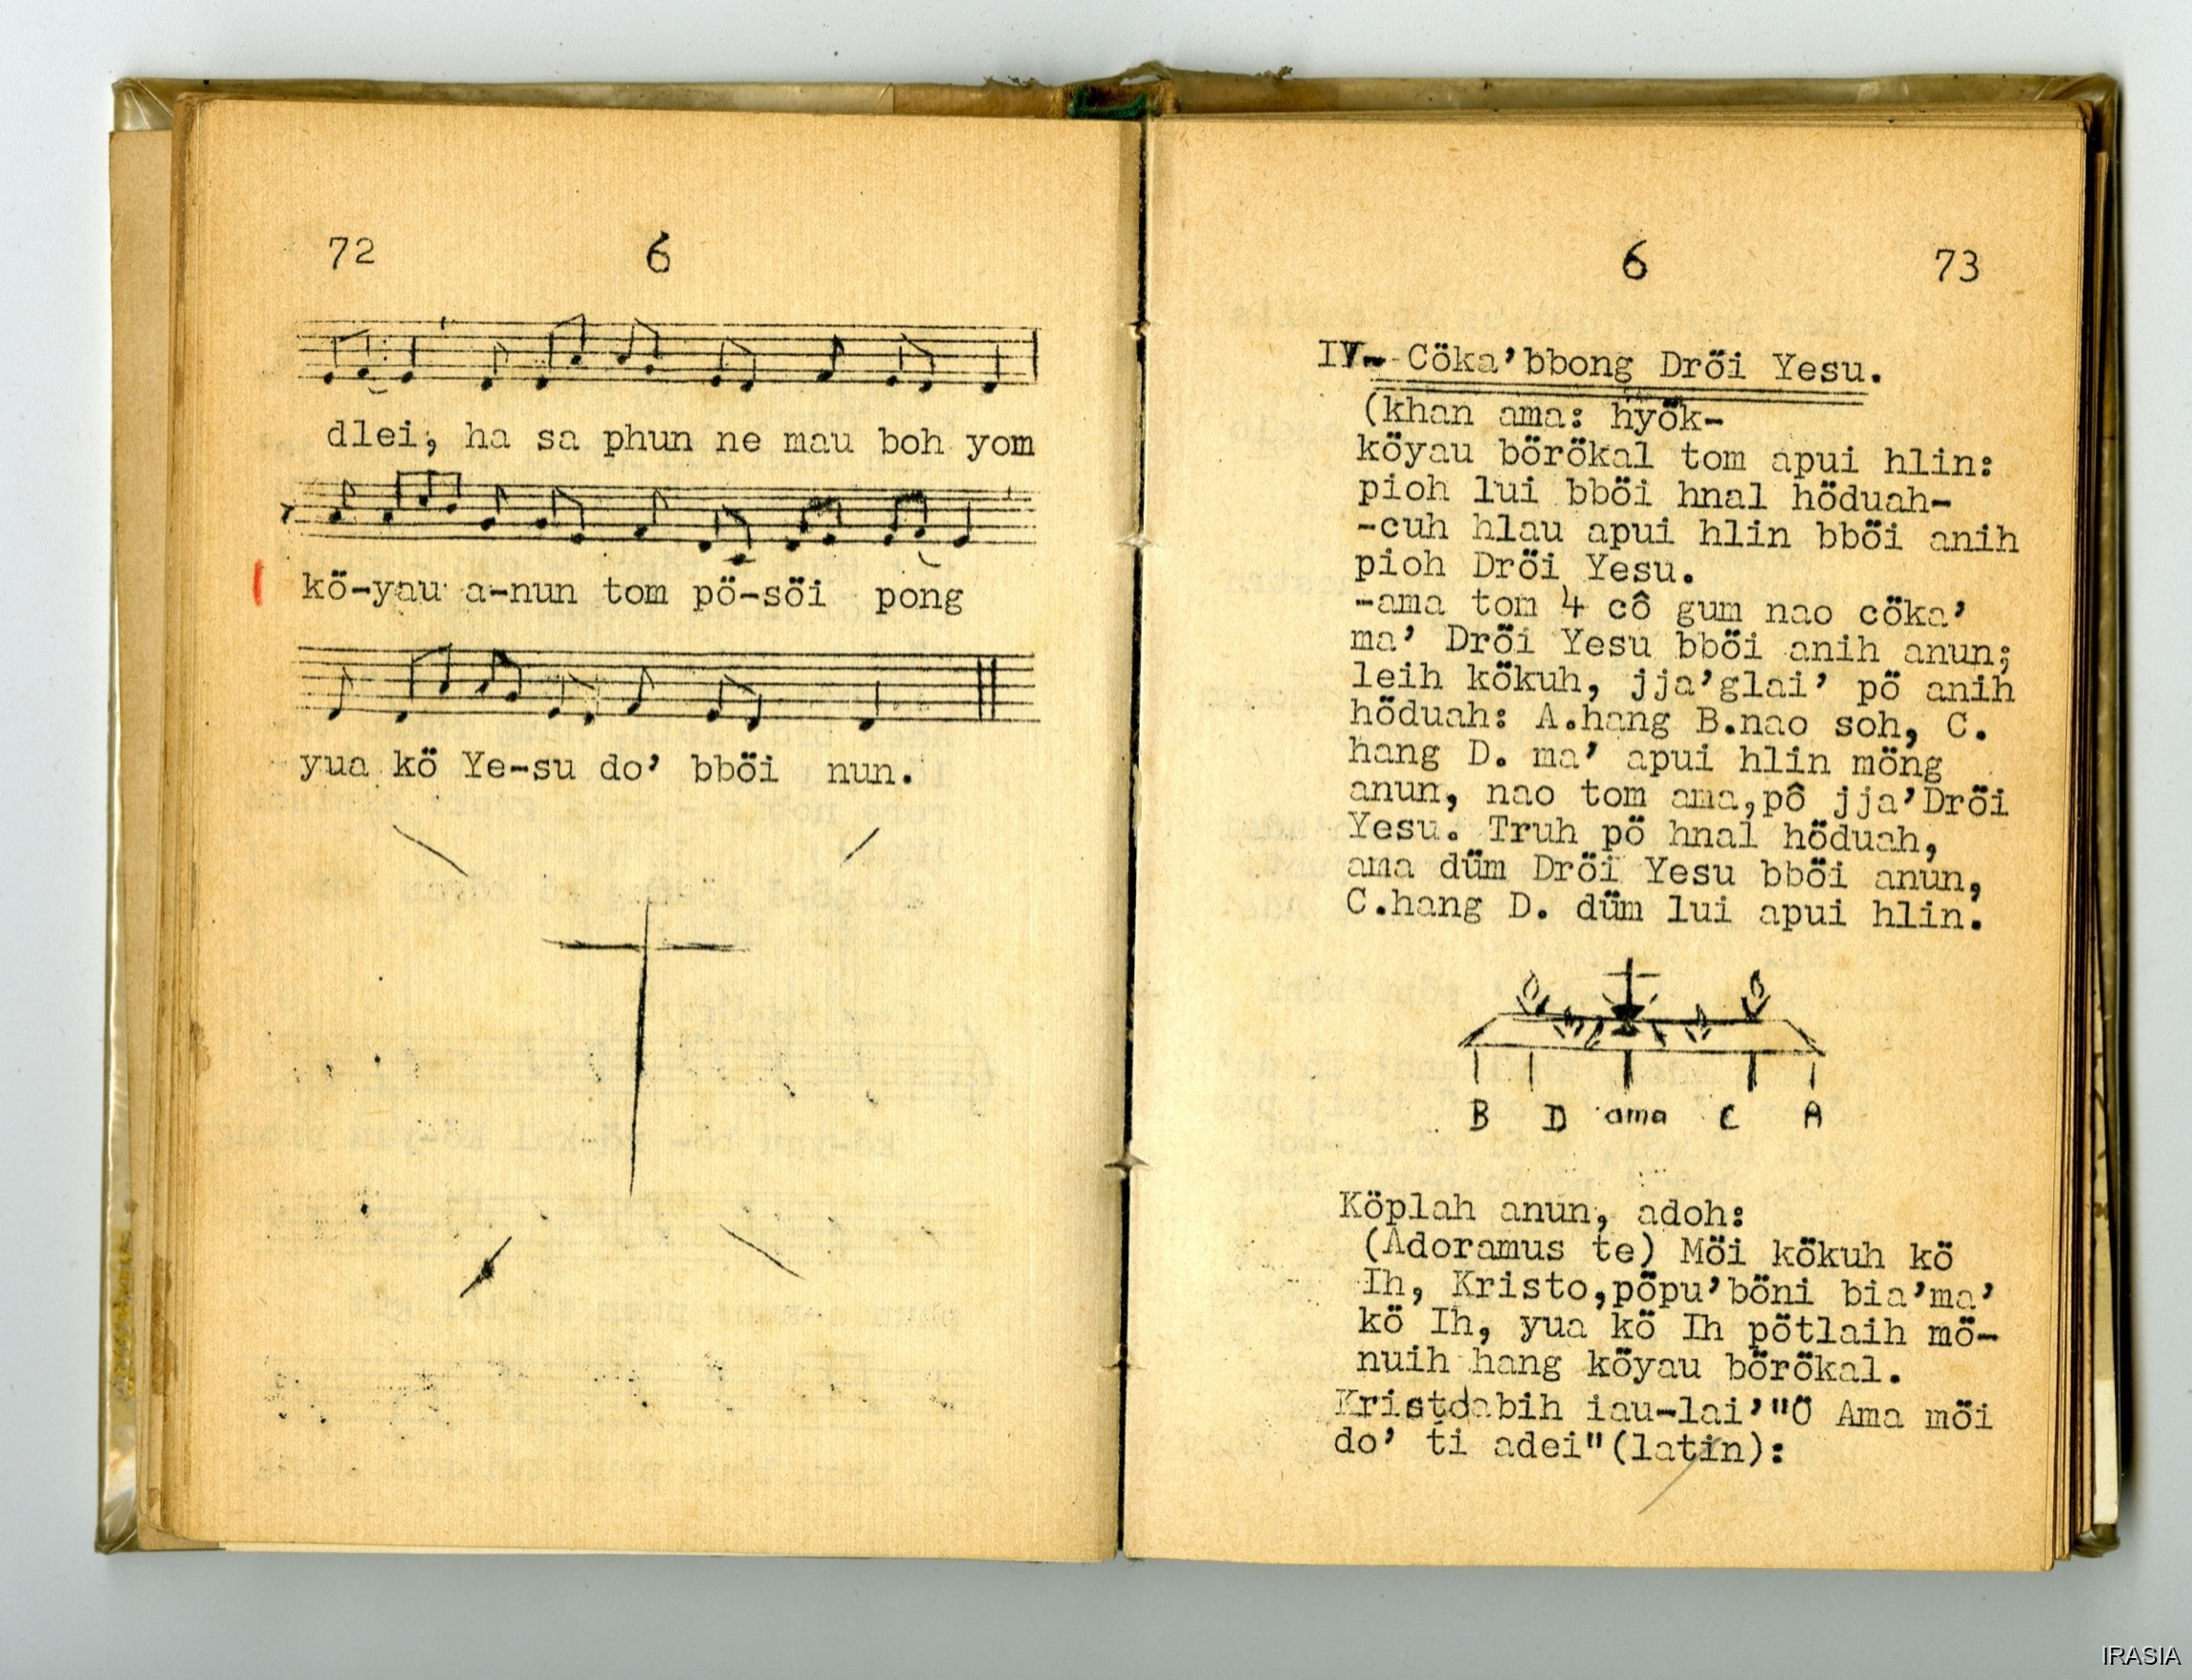 72 6
dlei, ha sa phun ne mau boh yom
kö-yau a-nun tom pö-söi pong
yua kö Ye-su do’ bböi nun.
6 73
IV.- Cöka’bbong Dröi Yesu.
(khan ama: hyök-
köyau börökal tom apui hlin:
pioh lui bböi hnal höduah-
-cuh hlau apui hlin bböi anih
pioh Dröi Yesu.
-ama tom 4 cô gum nao cöka’
ma’ Dröi Yesu bböi anih anun;
leih kökuh, jja’glai’ pö anih
höduah: A.hang B.nao soh, C.
hang D. ma’ apui hlin möng
anun, nao tom ama,pô jja’Dröi
Yesu. Truh pö hnal höduah,
ama düm Dröi Yesu bböi anun,
C.hang D. düm lui apui hlin.
B D ama C A
Köplah anun, adoh:
(Adoramus te) Möi kökuh kö
Ih, Kristo,pöpu’böni bia’ma’
kö Ih, yua kö Ih pötlaih mö-
nuih hang köyau börökal.
iau-lai’"Ö Ama möi
do’ ti adei"(latin):
IRASIA